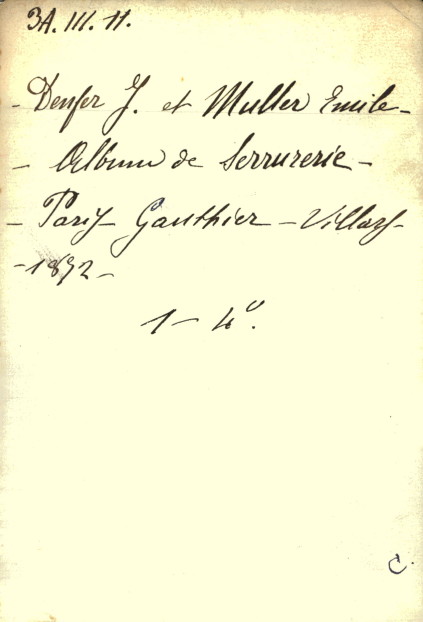 3A. III. 11.
- Denfer J. et Muller Emile -
- Album de Serrurerie -
- Paris - Gauthier - Villars -
- 1872 -
1 - 4º.
C.